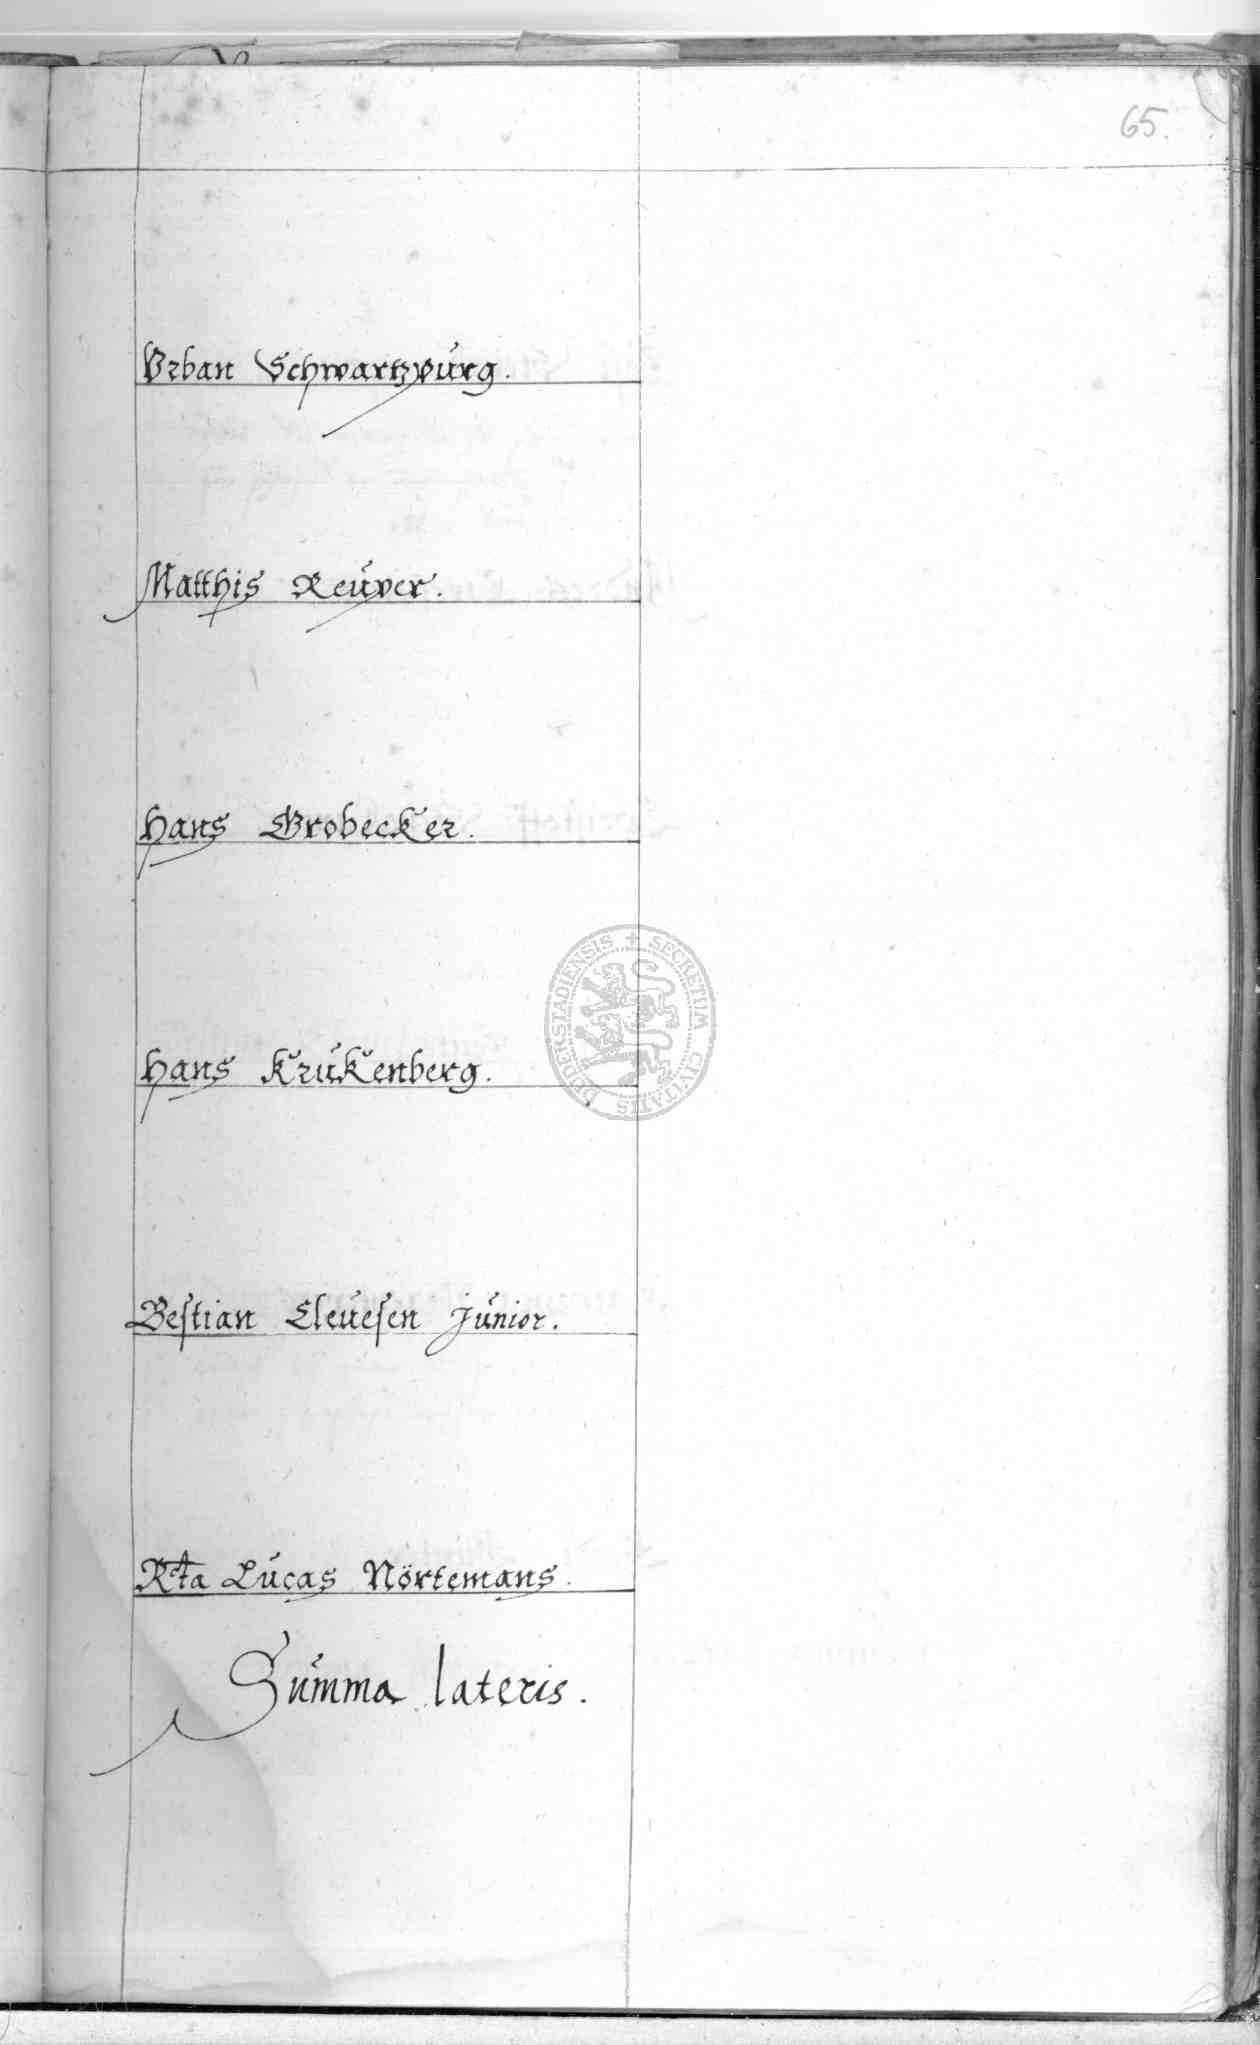 65.
Vrban Schwartzpurg.
Matthis Reuver.
Hans Grobecker.
Hans Krukenberg.
Bestian Cleuesen Junior.
Rta Lucas Nörtemans.
SECRETUM CIVITATIS DUDERSTADIENSIS
Summa lateris.